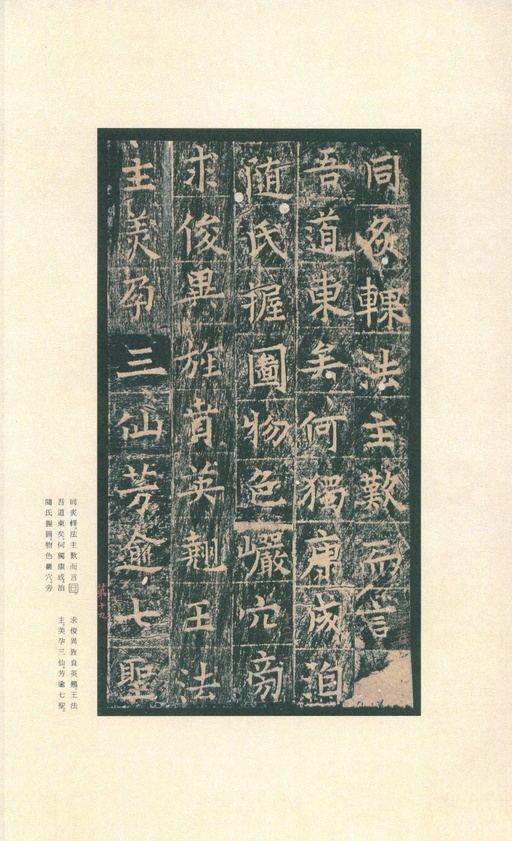 同炙輠法主歎而言
吾道東矣何獨康成洎
隨氏握圖物色巖穴旁
求俊異旌賁英翹王法
主美孕三仙芳逾七聖
第十九
同炙輠,法主歎而言曰
吾道東矣,何獨康成,洎
隨氏握圖,物色巖穴,旁
求俊異,旌賁英翹,王法
主,美孕三仙,芳逾七聖。